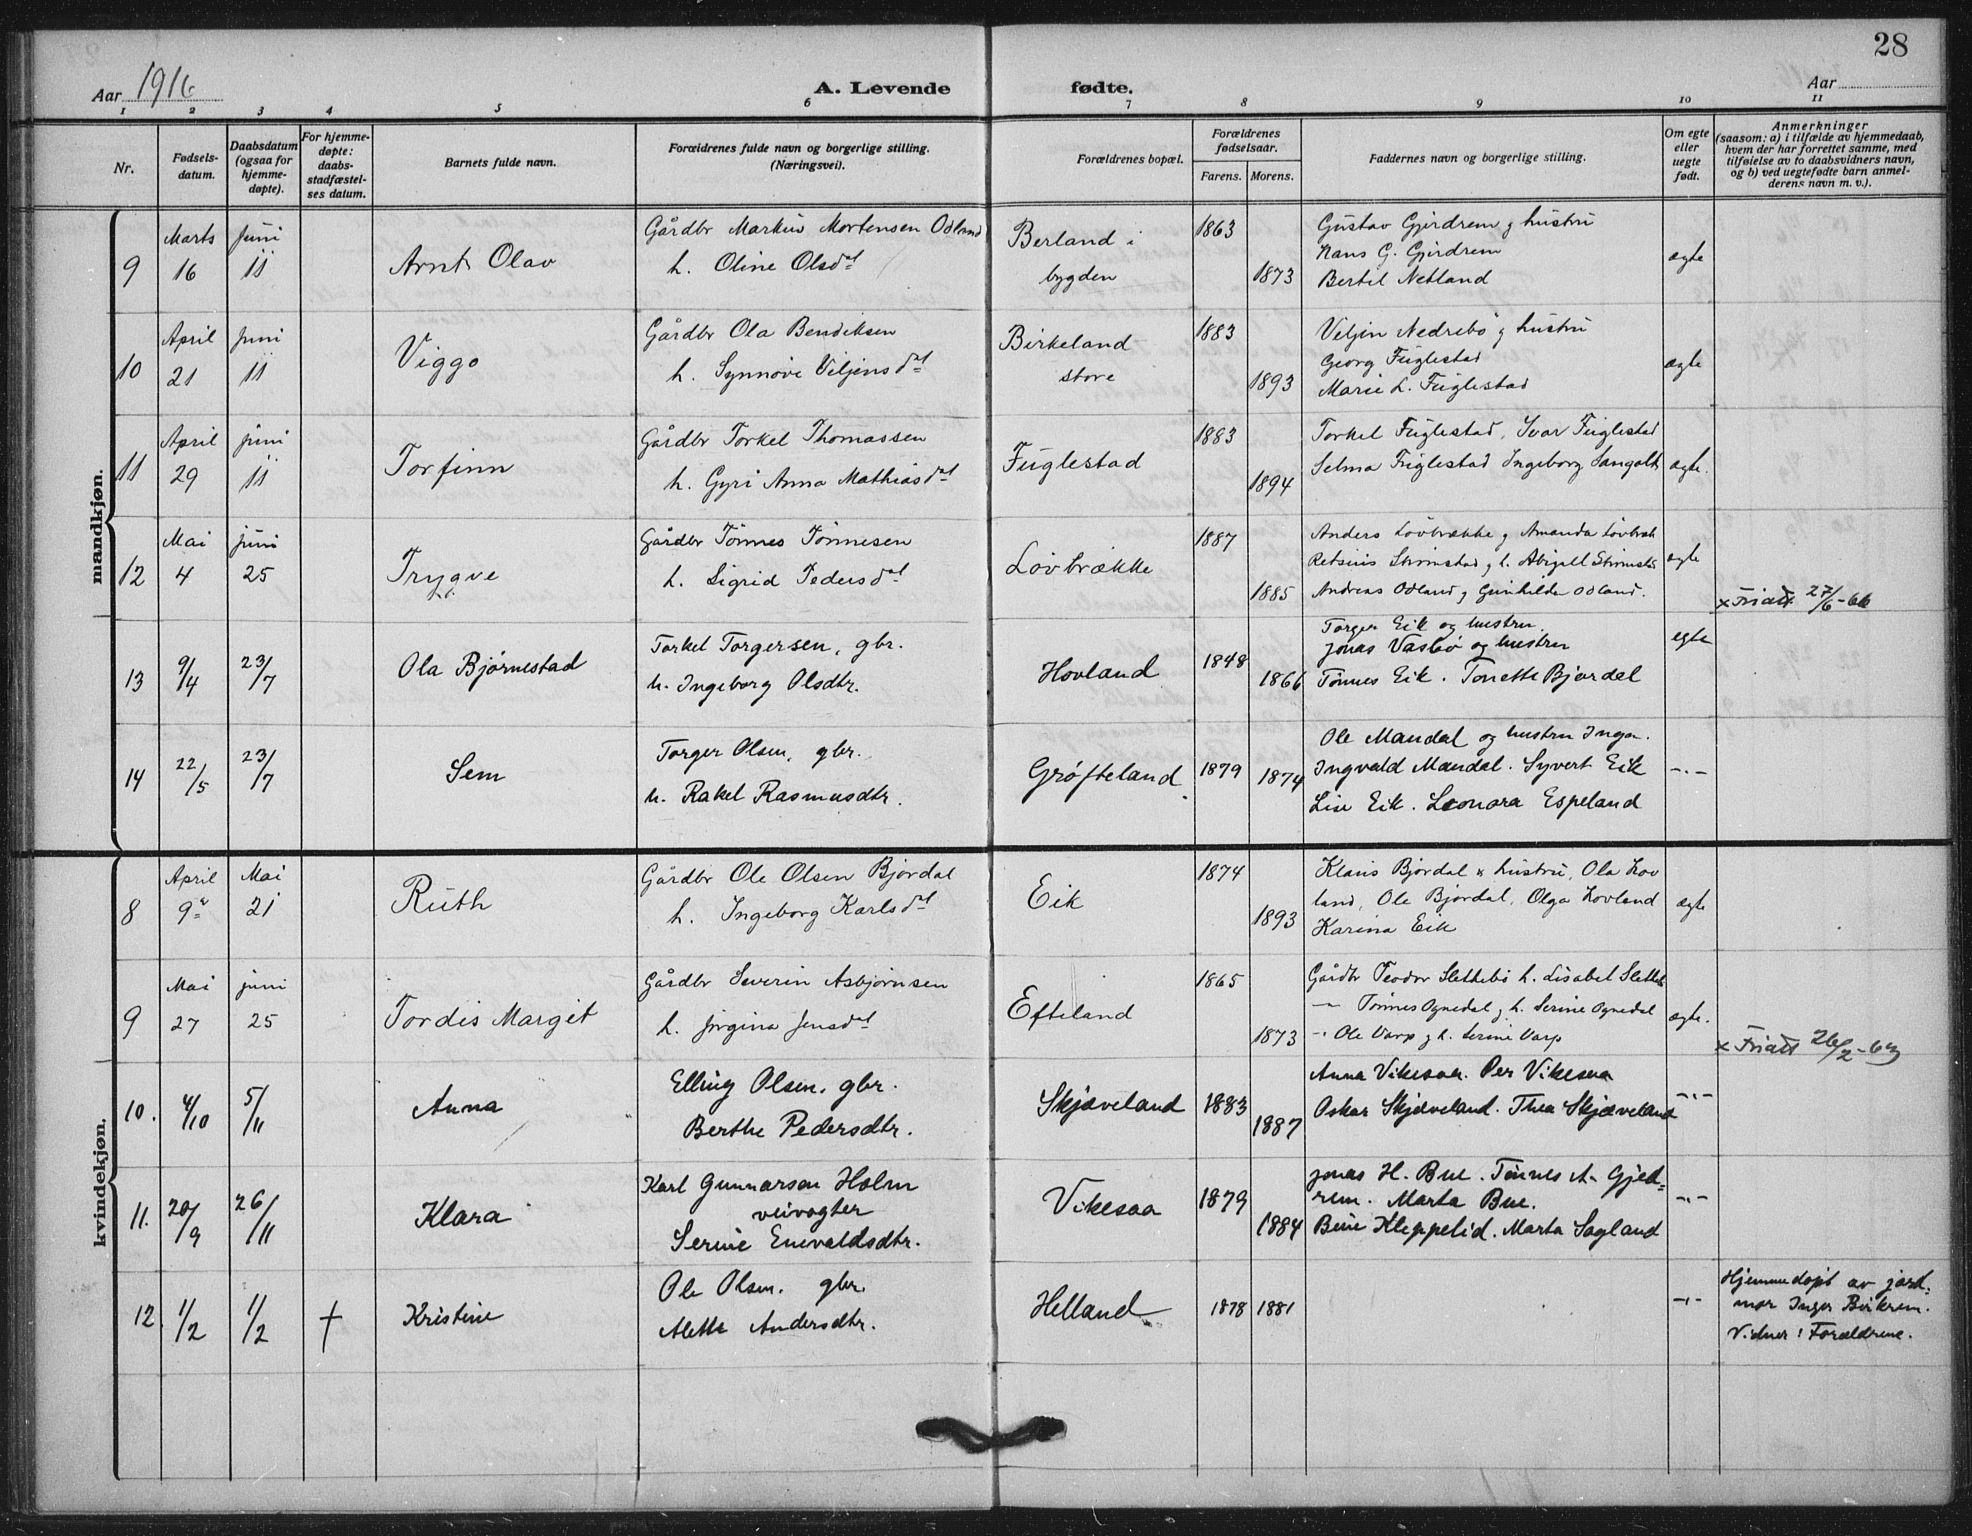 28
Aar 1916
A. Levende fødte.
Aar
1 2 3 4 5 6 7 8 9 10 11
Nr.
Fødsels-
datum.
Daabsdatum
(ogsaa for
hjemme-
døpte).
For hjemme-
døpte:
daabs-
stadfæstel-
ses datum.
Barnets fulde navn.
Forældrenes fulde navn og borgerlige stilling.
(Næringsvei).
Forældrenes bopæl.
Forældrenes
fødselsaar.
Farens. Morens.
Faddernes navn og borgerlige stilling.
Om egte
eller
uegte
født.
Anmerkninger
(saasom: a) i tilfælde av hjemmedaab,
hvem der har forrettet samme, med
tilføielse av to daabsvidners navn,
og b) ved uegtefødte barn anmel-
derens navn m. v.).
mandkjøn.
9
Marts
16
Juni
11
Arnt Olav
Gårdbr Markus Mortensen Odland
h. Oline Olsdat
Berland i
bygden
1863
1873
Gustav Gjerdrem & hustru
Hans G. Gjerdrem
Bertil Netland
ægte
10
April
21
Juni
11
Viggo
Gårdbr Ola Bendiksen
h. Synnøve Viljensdat
Birkeland
store
1883
1893
Veljen Nedrebø & hustru
Georg Fuglestad
Marie L. Fuglestad
ægte
11
April
29
Juni
11
Torfinn
Gårdbr Torkel Thomassen
h. Gyri Anna Mathiasdat
Fuglestad
1883
1894
Torkel Fuglestad, Ivar Fuglestad
Selma Fuglestad Ingeborg
ægte.
12
Mai
4
Juni
25
Trygve
Gårdbr Tønnes Tønnesen
h. Sigrid Pedersdat
Løvbrække
1887
1885
Anders Løvbrække & Amanda Løvbræk
& h. Abigell
Andreas Odland & Gunhilde Odland.
ægte
x Friatt 27/6-66
13
9/4
23/7
Ola Bjørnestad
Torkel Torgersen, gbr.
h. Ingeborg Olsdtr.
Hovland
1848
1866
Torger Eik og hustru.
Jonas Vasbø og hustru
Tønnes Eik. Tonette Bjordal
egte
14
22/5
23/7
Sem
Torger Olsen, gbr.
h. Rakel Rasmusdtr.
Grøfteland
1879
1874
Ole Mandal og hustru Inga.
Ingvald Mandal. Syvert Eik
Lise Eik. Leonora Espeland
-.-
kvindekjøn.
8
April
9
Mai
21
Ruth
Gårdbr Ole Olsen Bjordal
h. Ingeborg Karlsdat
Eik
1874
1893
Klaus Bjordal & hustru, Ola Hov
land, Ole Bjordal, Olga Hovland
Karina Eik
ægte
9
Mai
27
Juni
25
Tordis Margit
Gårdbr Severin Asbjørnsen
h. Jørgina Jensdat
Efteland
1865
1873
Gårdbr Teodor Slettebø h. Lisabet Slettebø
-"- Tønnes Ognedal & h. Serine Ognedal
-"- Ole Varp & h. Serine Varp
ægte.
x Friatt 26/2-63
10.
4/10
5/11
Anna
Elling Olsen, gbr.
Berthe Pedersdtr.
Skjæveland
1883
1887
Anna Vikesaa. Per Vikesaa
Oskar Skjæveland. Thea Skjæveland
-.-
11.
20/9
26/11
Klara
Karl Gunnarson Holm
veivogter
Serine Enevaldsdtr.
Vikesaa
1879
1884
Jonas H. Bue. Tønnes A. Gjed=
rem. Marta Bue.
Beine Kleppelid. Marta Sagland
-.-
12
1/2
1/2
†
Kristine
Ole Olsen. gbr.
Alette Andersdtr.
Helland
1878
1881
-.-
Hjemmedøpt av jord-
mor Inger Birkrem.
Vidner: Forældrene.